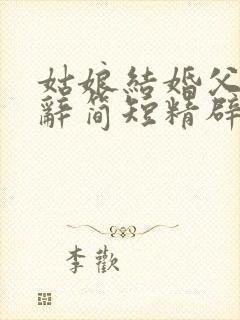 姑娘結婚父
辭簡短精辟
李歡